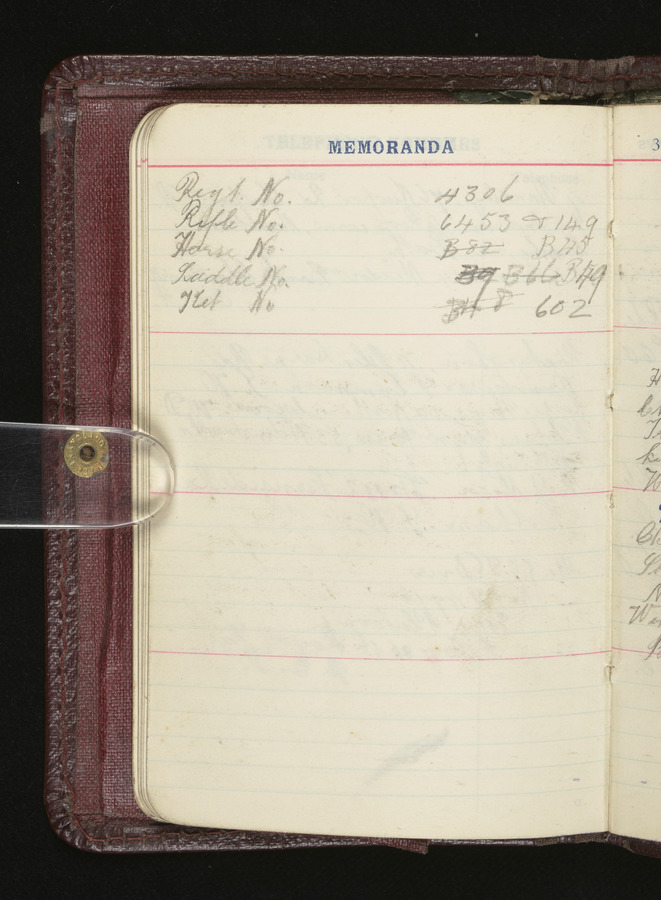 MEMORANDA
Regt. No. 4306
Rifle No. 6453 & 149
Horse No. B 82 B45
Saddle No. B9 B66 B49
Ket No 602
3